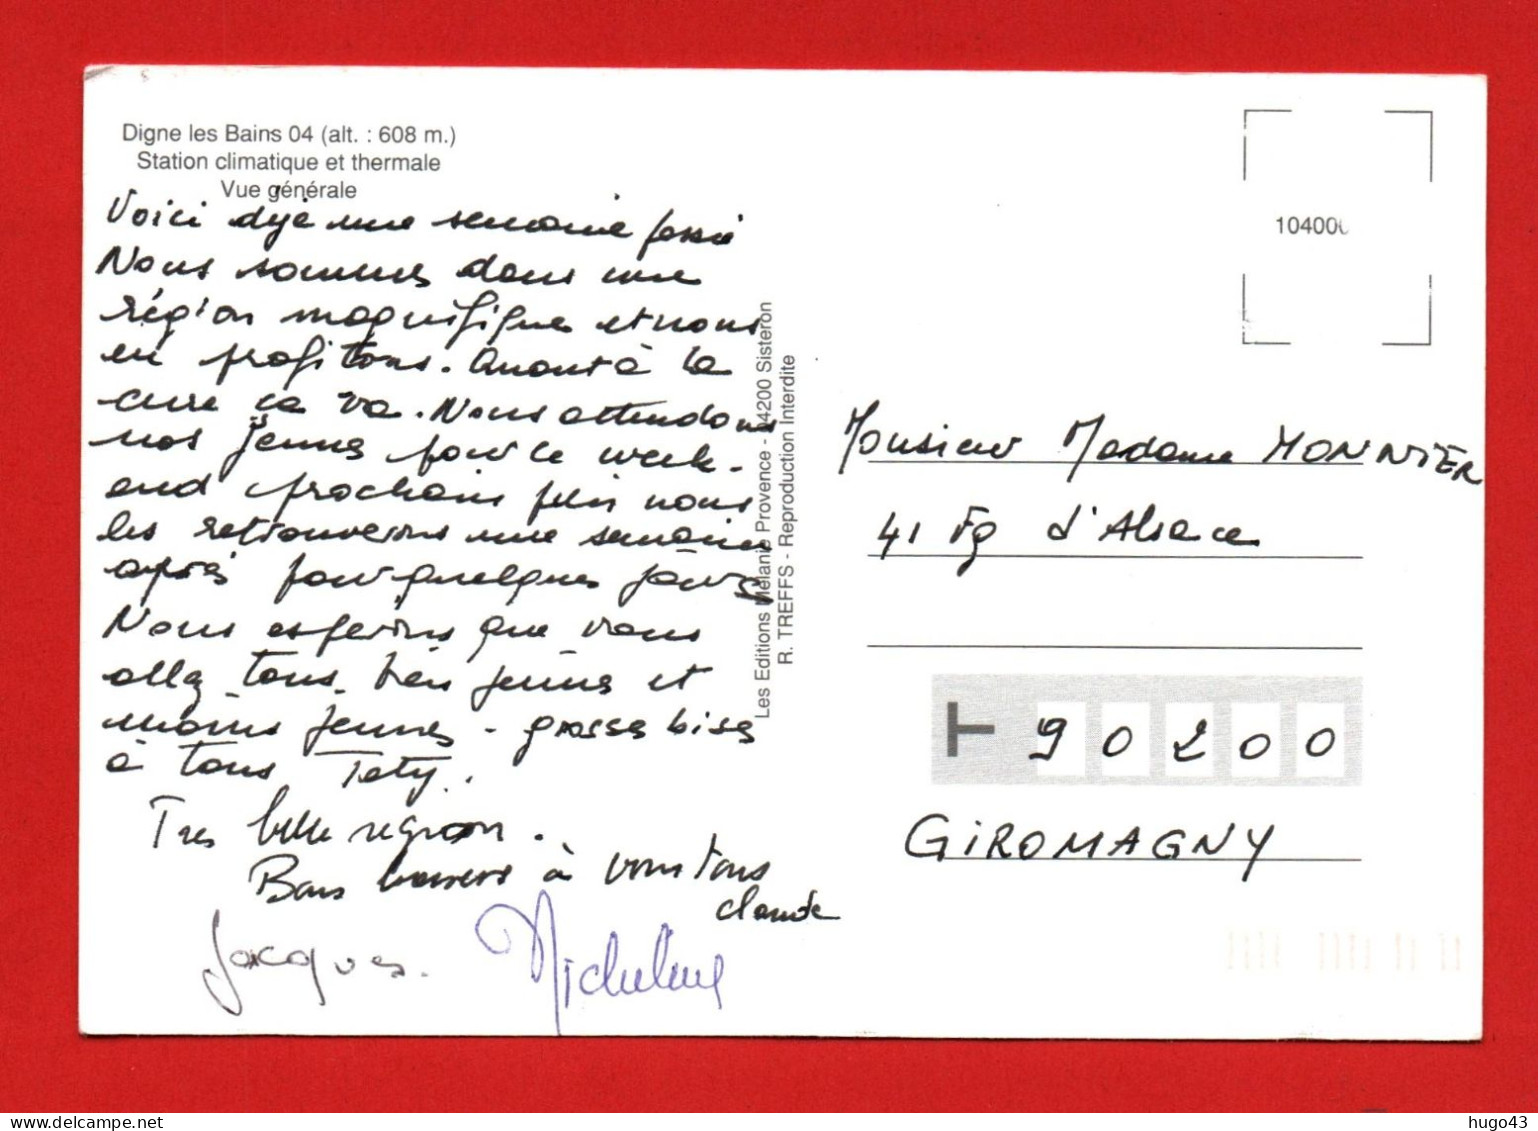 Digne les Bains 04 (alt. : 608 m.)
Station climatique et thermale
Vue générale
Voici déjà une semaine passée
Nous sommes dans une
région magnifique et nous
en profitons. Quant à la
cure ça va. Nous attendons
nos jeunes pour le week-
end prochain puis nous
les retrouverons une semaine
après pour quelques jours
Nous espérons que vous
allez tous bien jeunes et
moins jeunes - grosses bises
à tous Taty.
Tres belle region.
Bons baisers à vous tous
claude
Jacques.
Micheline
Les Editions Mélanie Provence - 04200 Sisteron
R. TREFFS - Reproduction Interdite
10400
Monsieur Madame MONNIER
41 Fg d'Alsace
90200
GIROMAGNY
hugo43